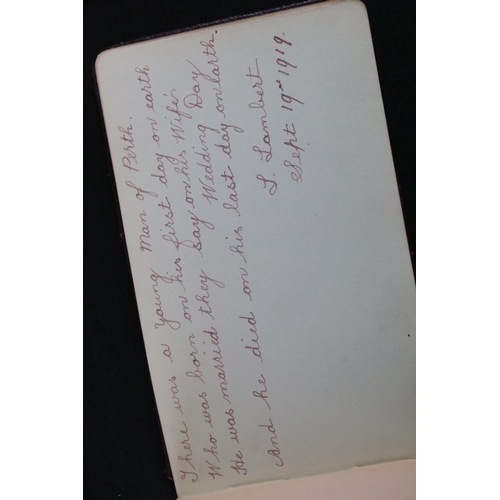 There was a young man of Perth.
Who was born on his first day on earth
He was married they say on his Wife's Wedding Day
And he died on his last day on earth.
S. Lambert
Sept 19th 1919.